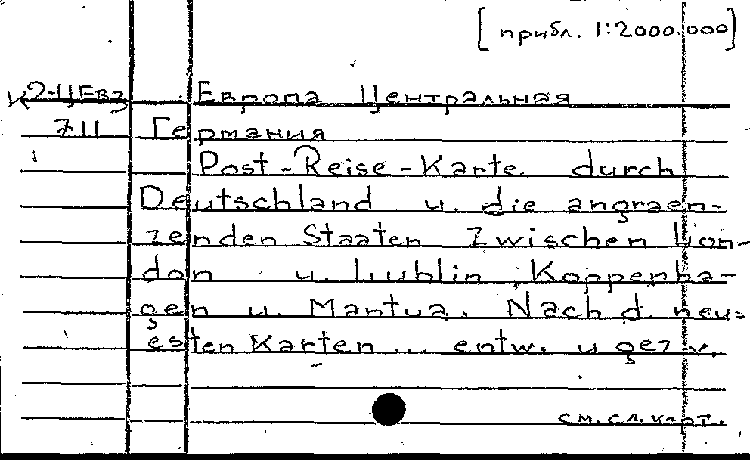 [прибл. 1:2000.000]
2-ЦЕвз Европа Центральная
711 Германия
Post-Reise-Karte durch
Deutschland u. die angraen-
zenden Staaten zwischen Lon-
don u. Lublin, Koppenha-
gen u. Mantua. Nach d. neu-
esten Karten... entw. u gez v.
см. сл. карт.